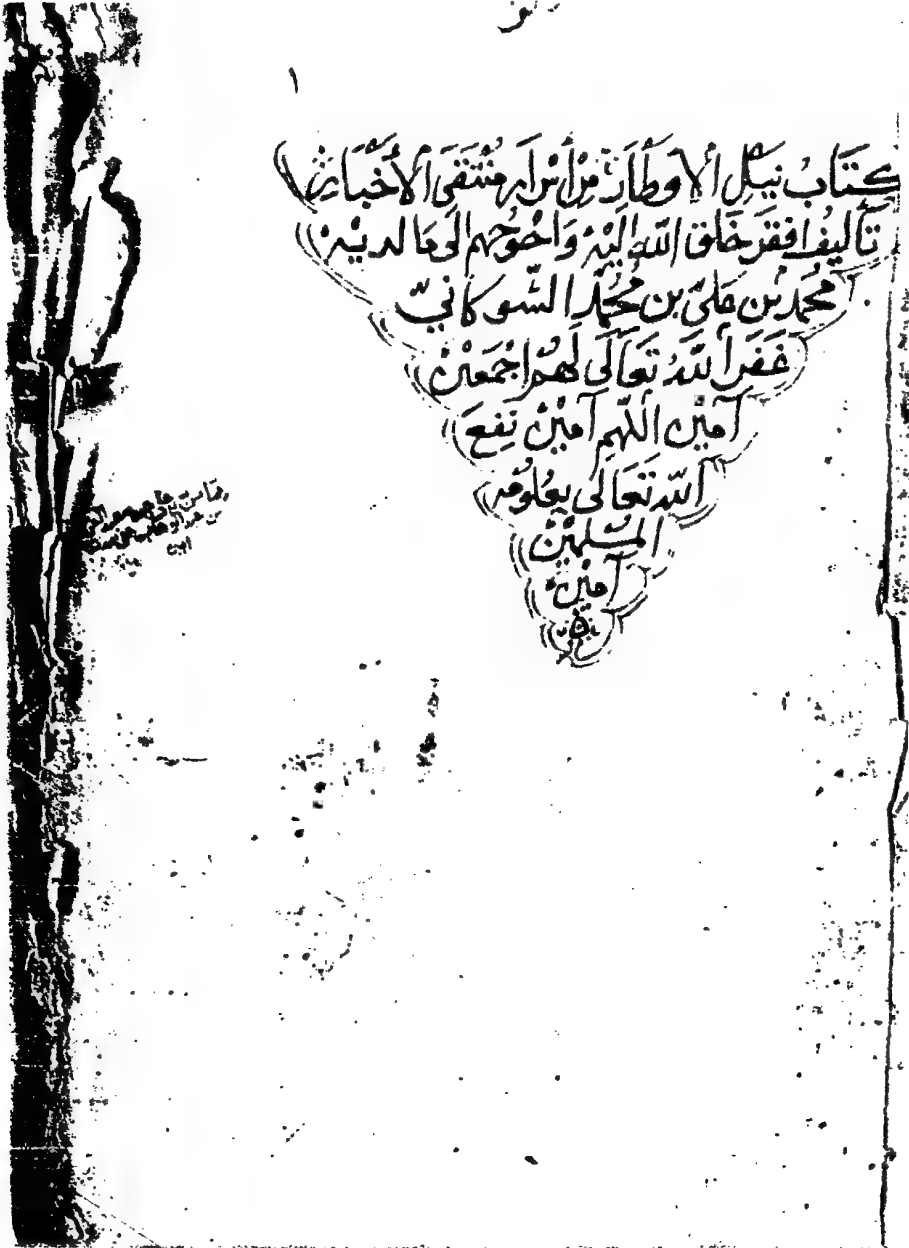 ١
كِتَابُ نَيْلِ الأَوْطَارِ مِنْ أَسْرَارِ مُنْتَقَى الأَخْبَارِ
تَأليفُ افقَر خَلق اللّه اِلَيْهِ وَاحْوَجُهم الَى مَا لديهْ
مُحَمَّد بْن عَلِيّ بن مُحَمَّد الشَّوكانيّ
غَفَرَ اللّهُ تَعَالَى لَهُمْ اجْمَعِيْنْ
آمِيْن اللّهم آمِيْنْ نَفعَ
اللّه تَعَالَى بِعُلُومِه
المُسْلِمِيْنْ
آمِيْنْ